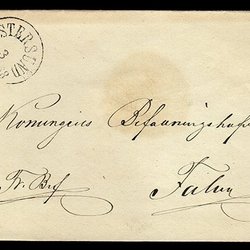 ÖSTERSUND
3
Konungens Befallningshafv
Fr. Bref
Falun